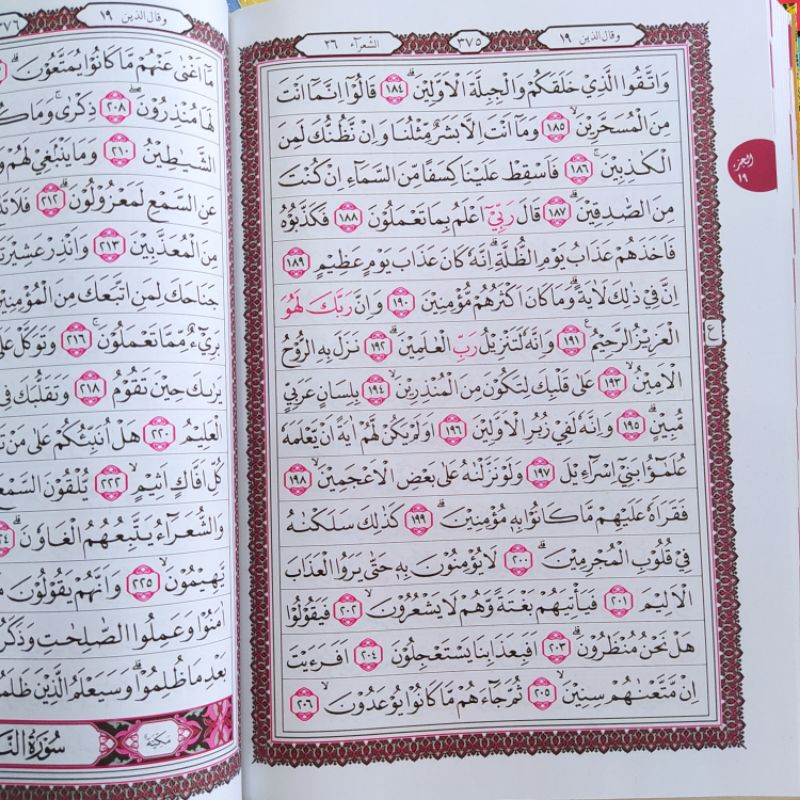 وقال الذين ١٩
٣٧٥
الشعرآء ٢٦
وَاتَّقُوا الَّذِي خَلَقَكُمْ وَالْجِبِلَّةَ الْاَوَّلِينَ ۗ ١٨٤ قَالُوْٓا اِنَّمَآ اَنْتَ
مِنَ الْمُسَحَّرِيْنَ ۙ ١٨٥ وَمَآ اَنْتَ اِلَّا بَشَرٌ مِّثْلُنَا وَاِنْ نَّظُنُّكَ لَمِنَ
الْكٰذِبِيْنَ ۚ ١٨٦ فَاَسْقِطْ عَلَيْنَا كِسَفًا مِّنَ السَّمَآءِ اِنْ كُنْتَ
مِنَ الصّٰدِقِيْنَ ۗ ١٨٧ قَالَ رَبِّيْٓ اَعْلَمُ بِمَا تَعْمَلُوْنَ ١٨٨ فَكَذَّبُوْهُ
فَاَخَذَهُمْ عَذَابُ يَوْمِ الظُّلَّةِ ۗ اِنَّهٗ كَانَ عَذَابَ يَوْمٍ عَظِيْمٍ ١٨٩
اِنَّ فِيْ ذٰلِكَ لَاٰيَةً ۗ وَمَا كَانَ اَكْثَرُهُمْ مُّؤْمِنِيْنَ ١٩٠ وَاِنَّ رَبَّكَ لَهُوَ
الْعَزِيْزُ الرَّحِيْمُ ۚ ١٩١ وَاِنَّهٗ لَتَنْزِيْلُ رَبِّ الْعٰلَمِيْنَ ۗ ١٩٢ نَزَلَ بِهِ الرُّوْحُ
الْاَمِيْنُ ۙ ١٩٣ عَلٰى قَلْبِكَ لِتَكُوْنَ مِنَ الْمُنْذِرِيْنَ ۙ ١٩٤ بِلِسَانٍ عَرَبِيٍّ
مُّبِيْنٍ ۗ ١٩٥ وَاِنَّهٗ لَفِيْ زُبُرِ الْاَوَّلِيْنَ ١٩٦ اَوَلَمْ يَكُنْ لَّهُمْ اٰيَةً اَنْ يَّعْلَمَهٗ
عُلَمٰٓؤُا بَنِيْٓ اِسْرَآءِيْلَ ١٩٧ وَلَوْ نَزَّلْنٰهُ عَلٰى بَعْضِ الْاَعْجَمِيْنَ ۙ ١٩٨
فَقَرَاَهٗ عَلَيْهِمْ مَّا كَانُوْا بِهٖ مُؤْمِنِيْنَ ۗ ١٩٩ كَذٰلِكَ سَلَكْنٰهُ
فِيْ قُلُوْبِ الْمُجْرِمِيْنَ ۗ ٢٠٠ لَا يُؤْمِنُوْنَ بِهٖ حَتّٰى يَرَوُا الْعَذَابَ
الْاَلِيْمَ ۙ ٢٠١ فَيَأْتِيَهُمْ بَغْتَةً وَّهُمْ لَا يَشْعُرُوْنَ ۙ ٢٠٢ فَيَقُوْلُوْا
هَلْ نَحْنُ مُنْظَرُوْنَ ۗ ٢٠٣ اَفَبِعَذَابِنَا يَسْتَعْجِلُوْنَ ٢٠٤ اَفَرَءَيْتَ
اِنْ مَّتَّعْنٰهُمْ سِنِيْنَ ۙ ٢٠٥ ثُمَّ جَآءَهُمْ مَّا كَانُوْا يُوْعَدُوْنَ ۙ ٢٠٦
الجزء
١٩
ع
وقال الذين ١٩
٣٧٦
مَآ اَغْنٰى عَنْهُمْ مَّا كَانُوْا يُمَتَّعُوْنَ ۗ
لَهَا مُنْذِرُوْنَ ۖ ٢٠٨ ذِكْرٰى ۚ وَمَا
الشَّيٰطِيْنُ ٢١٠ وَمَا يَنْۢبَغِيْ لَهُمْ
عَنِ السَّمْعِ لَمَعْزُوْلُوْنَ ۗ ٢١٢ فَلَا
مِنَ الْمُعَذَّبِيْنَ ٢١٣ وَاَنْذِرْ عَشِيْرَتَ
جَنَاحَكَ لِمَنِ اتَّبَعَكَ مِنَ الْمُؤْمِنِيْنَ
بَرِيْٓءٌ مِّمَّا تَعْمَلُوْنَ ۚ ٢١٦ وَتَوَكَّلْ
يَرٰىكَ حِيْنَ تَقُوْمُ ٢١٨ وَتَقَلُّبَكَ فِى
الْعَلِيْمُ ٢٢٠ هَلْ اُنَبِّئُكُمْ عَلٰى مَنْ
كُلِّ اَفَّاكٍ اَثِيْمٍ ۙ ٢٢٢ يُّلْقُوْنَ السَّمْعَ
وَالشُّعَرَآءُ يَتَّبِعُهُمُ الْغَاوٗنَ ۗ
يَّهِيْمُوْنَ ۙ ٢٢٥ وَاَنَّهُمْ يَقُوْلُوْنَ
اٰمَنُوْا وَعَمِلُوا الصّٰلِحٰتِ وَذَكَرُ
بَعْدِ مَا ظُلِمُوْا ۗ وَسَيَعْلَمُ الَّذِيْنَ
مكية
سُوْرَةُ